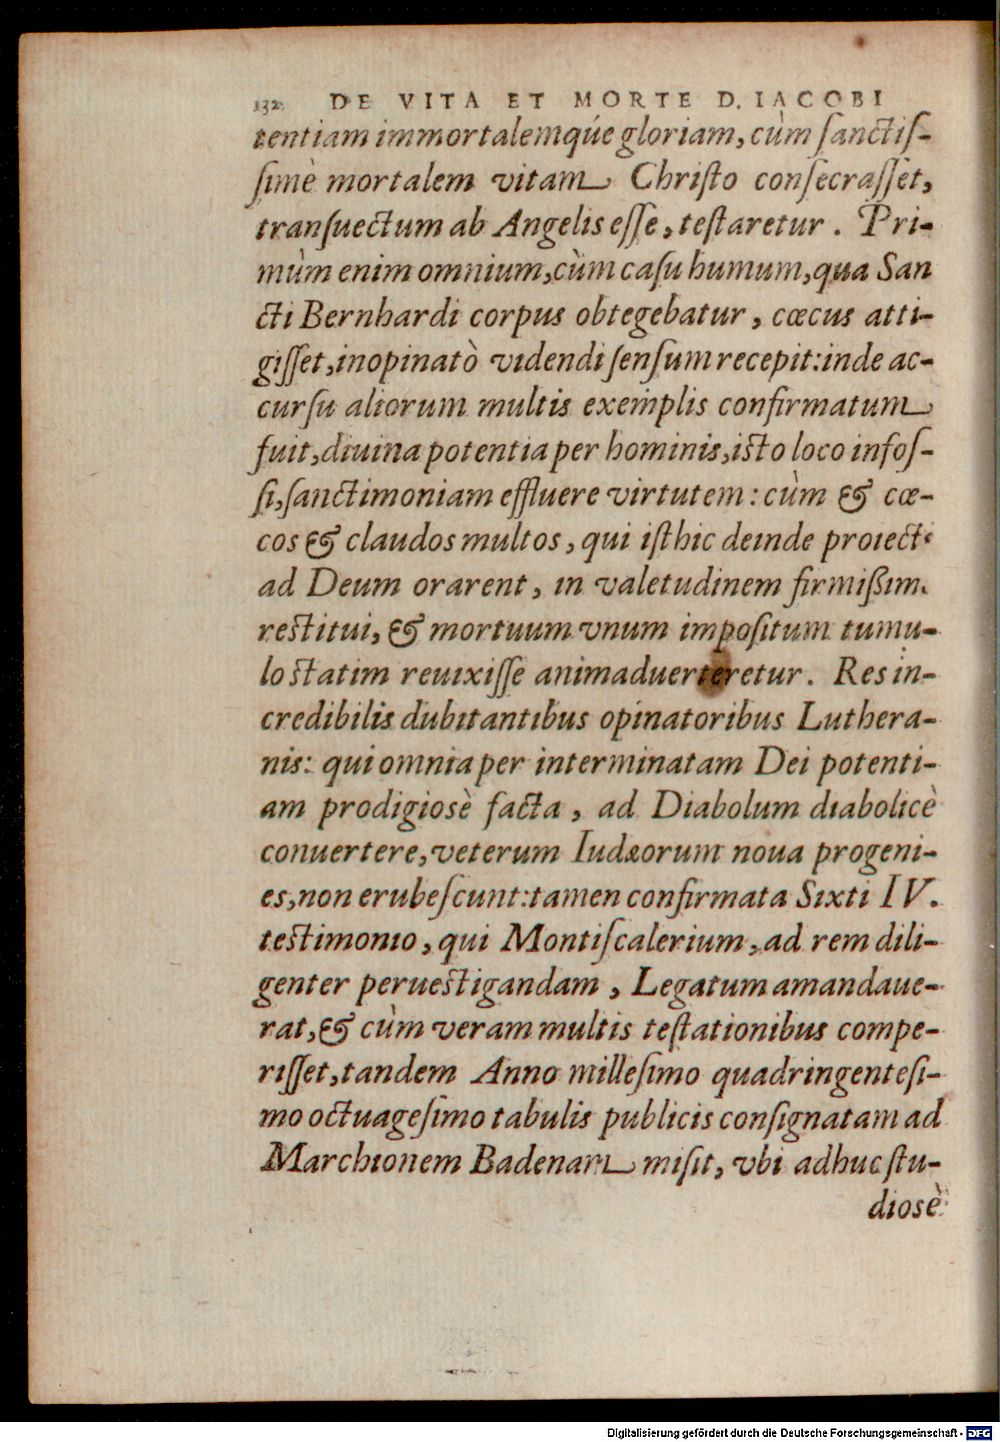 132 DE VITA ET MORTE D. IACOBI
tentiam immortalemqúe gloriam, cùm ſanctiſ-
ſimè mortalem vitam Chriſto conſecraſſet,
tranſuectum ab Angelis eſſe, teſtaretur. Pri-
mùm enim omnium, cùm caſu humum, qua San
cti Bernhardi corpus obtegebatur, cœcus atti-
giſſet, inopinatò videndi ſenſum recepit: inde ac-
curſu aliorum multis exemplis confirmatum
fuit, diuina potentia per hominis, iſto loco infoſ-
ſi, ſanctimoniam effluere virtutem: cùm & cœ-
cos & claudos multos, qui iſthic deinde proiecti
ad Deum orarent, in valetudinem firmißim.
reſtitui, & mortuum vnum impoſitum tumu-
lo ſtatim reuixiſſe animaduerteretur. Res in-
credibilis dubitantibus opinatoribus Luthera-
nis: qui omnia per interminatam Dei potenti-
am prodigioſè facta, ad Diabolum diabolicè
conuertere, veterum Iudæorum noua progeni-
es, non erubeſcunt: tamen confirmata Sixti IV.
teſtimonio, qui Montiſcalerium, ad rem dili-
genter perueſtigandam, Legatum amandaue-
rat, & cùm veram multis teſtationibus compe-
riſſet, tandem Anno milleſimo quadringenteſi-
mo octuageſimo tabulis publicis conſignatam ad
Marchionem Badenam miſit, vbi adhuc ſtu-
dioſè
Digitalisierung gefördert durch die Deutsche Forschungsgemeinschaft - DFG